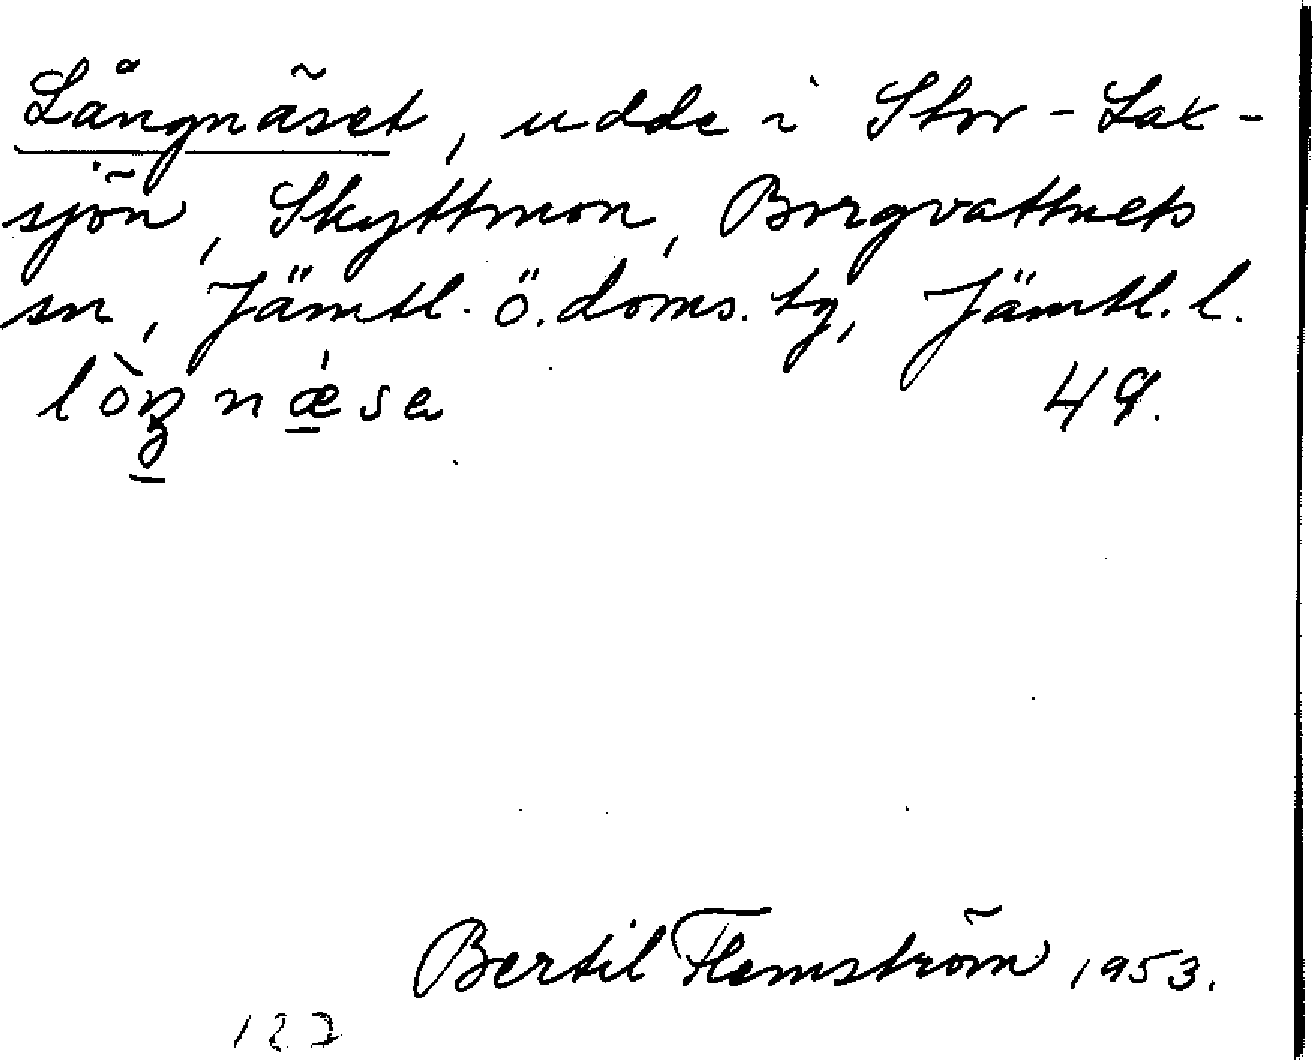 Långnäset, udde i Stor-Lax-
sjön, Skyttmon, Borgvattnets
sn, Jämtl. ö. doms. tg, Jämtl. l.
49.
Bertil Flemström 1953.
127